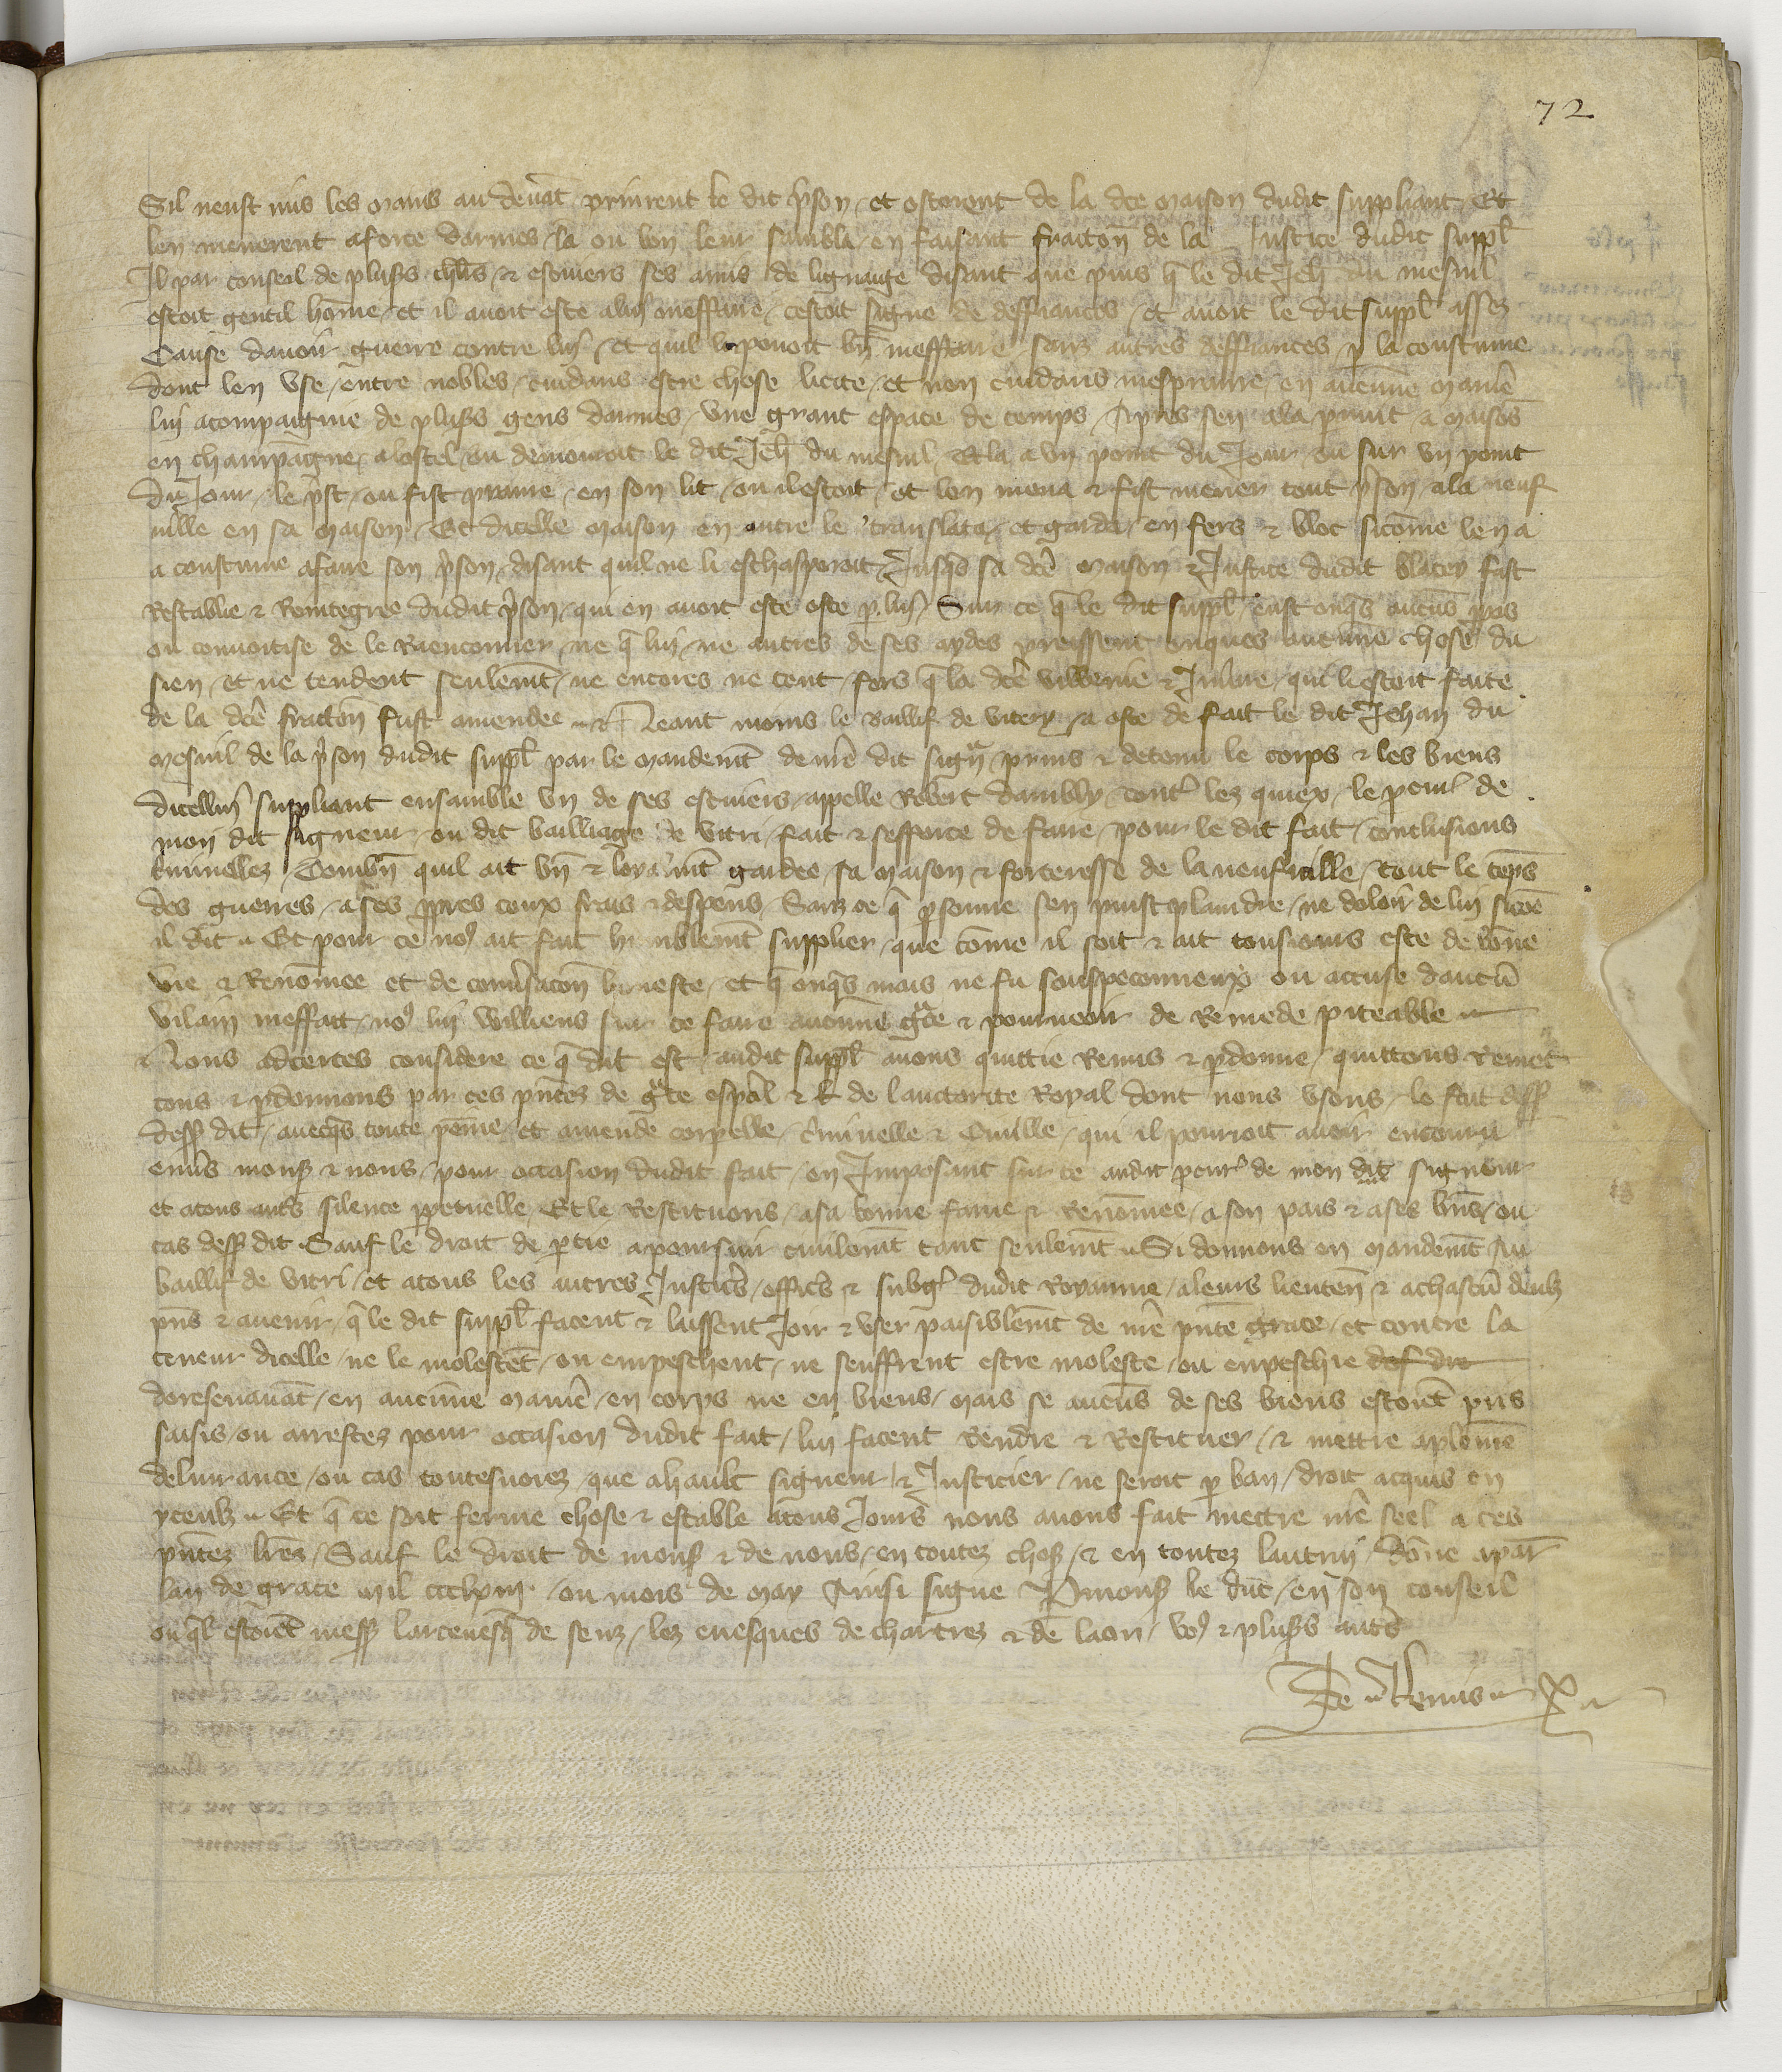 72
Sil neust mis les mains au devāt prinrent le dit p̃son et osterent de la dcē maison dudit suppliant Et
len menerent a force darmes la ou bon leur sambla en faisant fraccōn de la Justice dudit suppl̃
Il par conseil de plus̃s chl̃rs & escuiers ses amis de lignaige disant que puis q̃ le dit Jeh̃ du mesnil
estoit gentil hōme et il avoit este a lui meffaire cestoit signe de deffiances et avoit le dit suppl̃ assez
Cause davoir guerre contre lui et quil le povoit bn̄ meffaire sanz autres deffiances p̱ la coustume
dont len use entre nobles cuidans estre chose licite et non cuidans mespranre en aucune manie᷑
lui acompaignie de plus̃s gens darmes une grant espace de temps apres sen ala a maisōs
en champaigne a lostel ou demouroit le dit Jeh̃ du mesnil Et la a un point du Jour ou sur un point
du Jour le p̃st ou fist pranre en son lit ou il estoit et lon mena & fist mener tout p̃son a la neuf
ville en sa maison Et dicelle maison en autre le translata et garda en fers & bloc sicōme len a
a coustume a faire son p̃son disant quil ne li eschaperoit Jusq̃s sa dcē maison & Justice dudit blacey fust
Restablie & Reintegree dudit p̃son qui en avoit este oste p̱ lui Sanz ce q̃ le dit suppl̃ eust onq̃s aucūs
ou convoitise de le Raenconner ne q̃ lui ne autres de ses aydes preissent onques aucune chose du
sien et ne tendent seulem̄t ne encores ne tent fors q̃ la dcē villenie & Iniure qui li estoit faite
de la dcē fraccōn fust amendee & Neant moins le Baillif de vitry a oste de fait le dit Jehan du
mesnil de la p̃son dudit suppl̃ par le mandem̄t de nr̄e dit sigñ prins & detenu le corps & les biens
dicellui suppliant ensamble un de ses escuiers appelle Robert dambly contr̃ lez quiex le pcur̃ de
mon dit signeur ou dit bailliage de vitri fait & sefforce de faire pour le dit fait conclusions
kriminellez Combn̄ quil ait bn̄ & loyaum̄t gardee sa maison & forteresse de la neufville tout le tēps
des guerres a ses pp̱res coux frais & despens Sanz ce q̃ p̱sonne sen puist plaindre ne doloir de lui sicōe
il dit Et pour ce no᷒ ait fait humblem̄t supplier que cōme il soit & ait tousiours este de bōne
vie & Renōmee et de conv̄sacōn honneste et q̃ onq̃s mais ne fu souspeconneux ou accuse daucū
vilain meffait no᷒ lui vueilliens sur ce faire aucune gr̃ce & pourveoir de Remede piteable
Nous adcertes considere ce q̃ dit est audit suppl̃ avons quittie Remis & p̱donne quittons Remet
tons & p̱donnons par ces pn̄tez de gr̃ce esp̄cial & de lauctorite Royal dont nous usons le fait dess̃
dess̃ dit avecq̃s toute peine et amende corpelle criminelle & Civille qui il pourroit avoir encouru
env̄s mons̃ & nous pour occasion dudit fait en Imposant sur ce audit pcur̃ de mon dit signeur
et a tous autr̃s silence pp̱etuelle Et le Restituons a sa bonne fame & Renōmee a son pais & a ses bn̄s ou
cas dess̃ dit Sauf le droit de p̱tie a poursuir civilem̄t tant seulem̄t Si donnons en mandem̄t au
baillif de vitri et a tous les autres Justic̃s offic̃s & subg̃ dudit Royaume a leurs lieuten̄ & a chascū deulx
pn̄s & avenir q̃ le dit suppl̃ facent & laissent Joir & user paisiblem̄t de nr̄e pn̄te grace et contre la
teneur dicelle ne le molestēt ou empeschent ne seuffrent estre moleste ou enpeschie
doresenavāt en aucune manie᷑ en corps ne en biens mais se aucūs de ses biens estoiēt pris
saisis ou arrestez pour occasion dudit fait lui facent Rendre & Restituer & mettre a pleine
delivrance ou cas toutesvoiez que a hault signeur & Justicier ne seroit p̱ ban droit acquis en
yceulx Et q̃ ce soit ferme chose & estable a tous Jours nous avons fait mettre nr̄e seel a ces
pn̄tez lr̄ez Sauf le droit de mons̃ & de nous en toutez chos̃ & en toutez lautrui Dōne a par̃
lan de grace mil ccclxiii ou mois de may Ainsi signe P mons̃ le duc en son conseil
ou q̃l estoiēt mess̃ larcevesq̃ de sens lez evesques de chartrez & de laon vo᷒ & plus̃s autr̃s